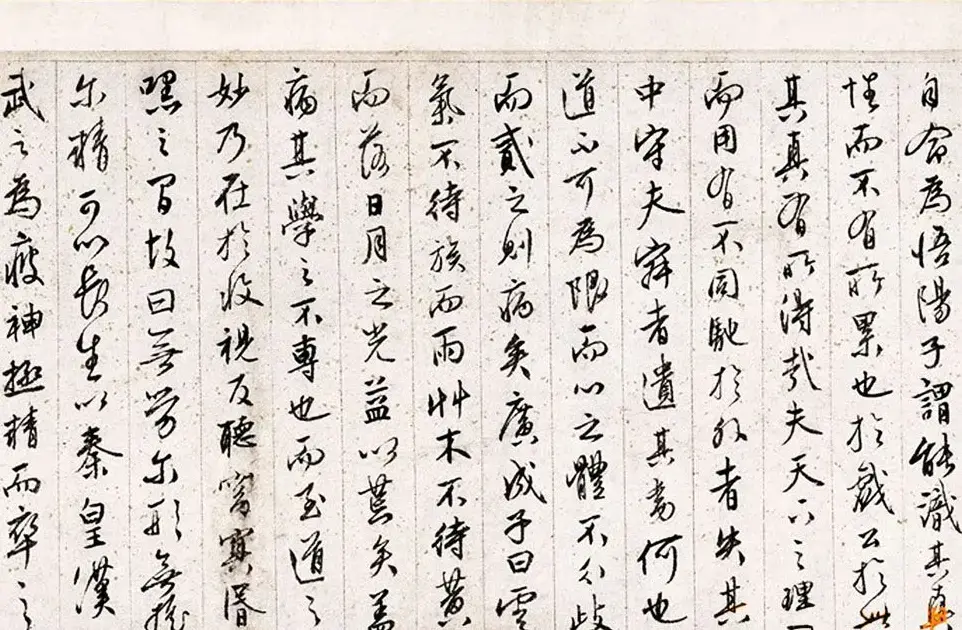 自命為悟陽子謂能識其
性而不有所累也於戲公於
其真有所得哉夫天下之理
而用有不同馳於外者失其
中守夫寂者遺其旁何也
道不可為限而心之體不可歧
而貳之則病矣廣成子曰雲
氣不待族而雨艸木不待黄
而落日月之光益以荒矣蓋
病其學之不專也而至道之
妙乃在於收視反聽窅冥昏
嘿之間故曰無勞尔形無搖
尔精可以長生以秦皇漢
武之為疲神極精而卒之